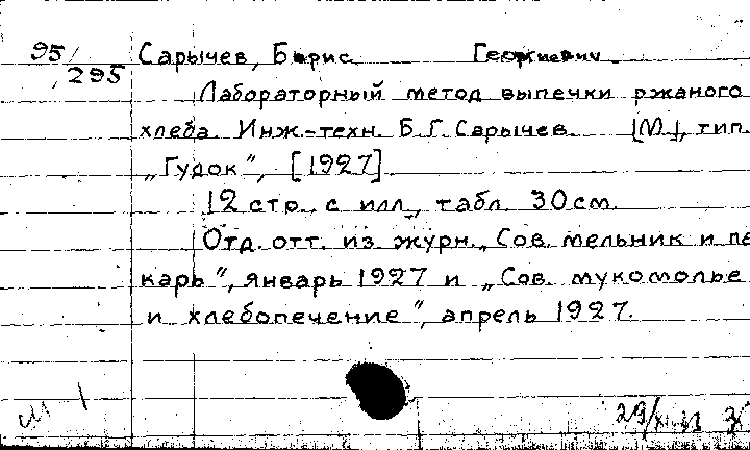 95/295
Сарычев, Борис Георгиевич.
Лабораторный метод выпечки ржаного
хлеба. Инж.-техн. Б.Г. Сарычев. [М.], тип.
„Гудок", [1927].
12 стр., с илл., табл. 30 см.
Отд. отт. из журн. „Сов. мельник и пе
карь", январь 1927 и „Сов. мукомолье
и хлебопечение", апрель 1927.